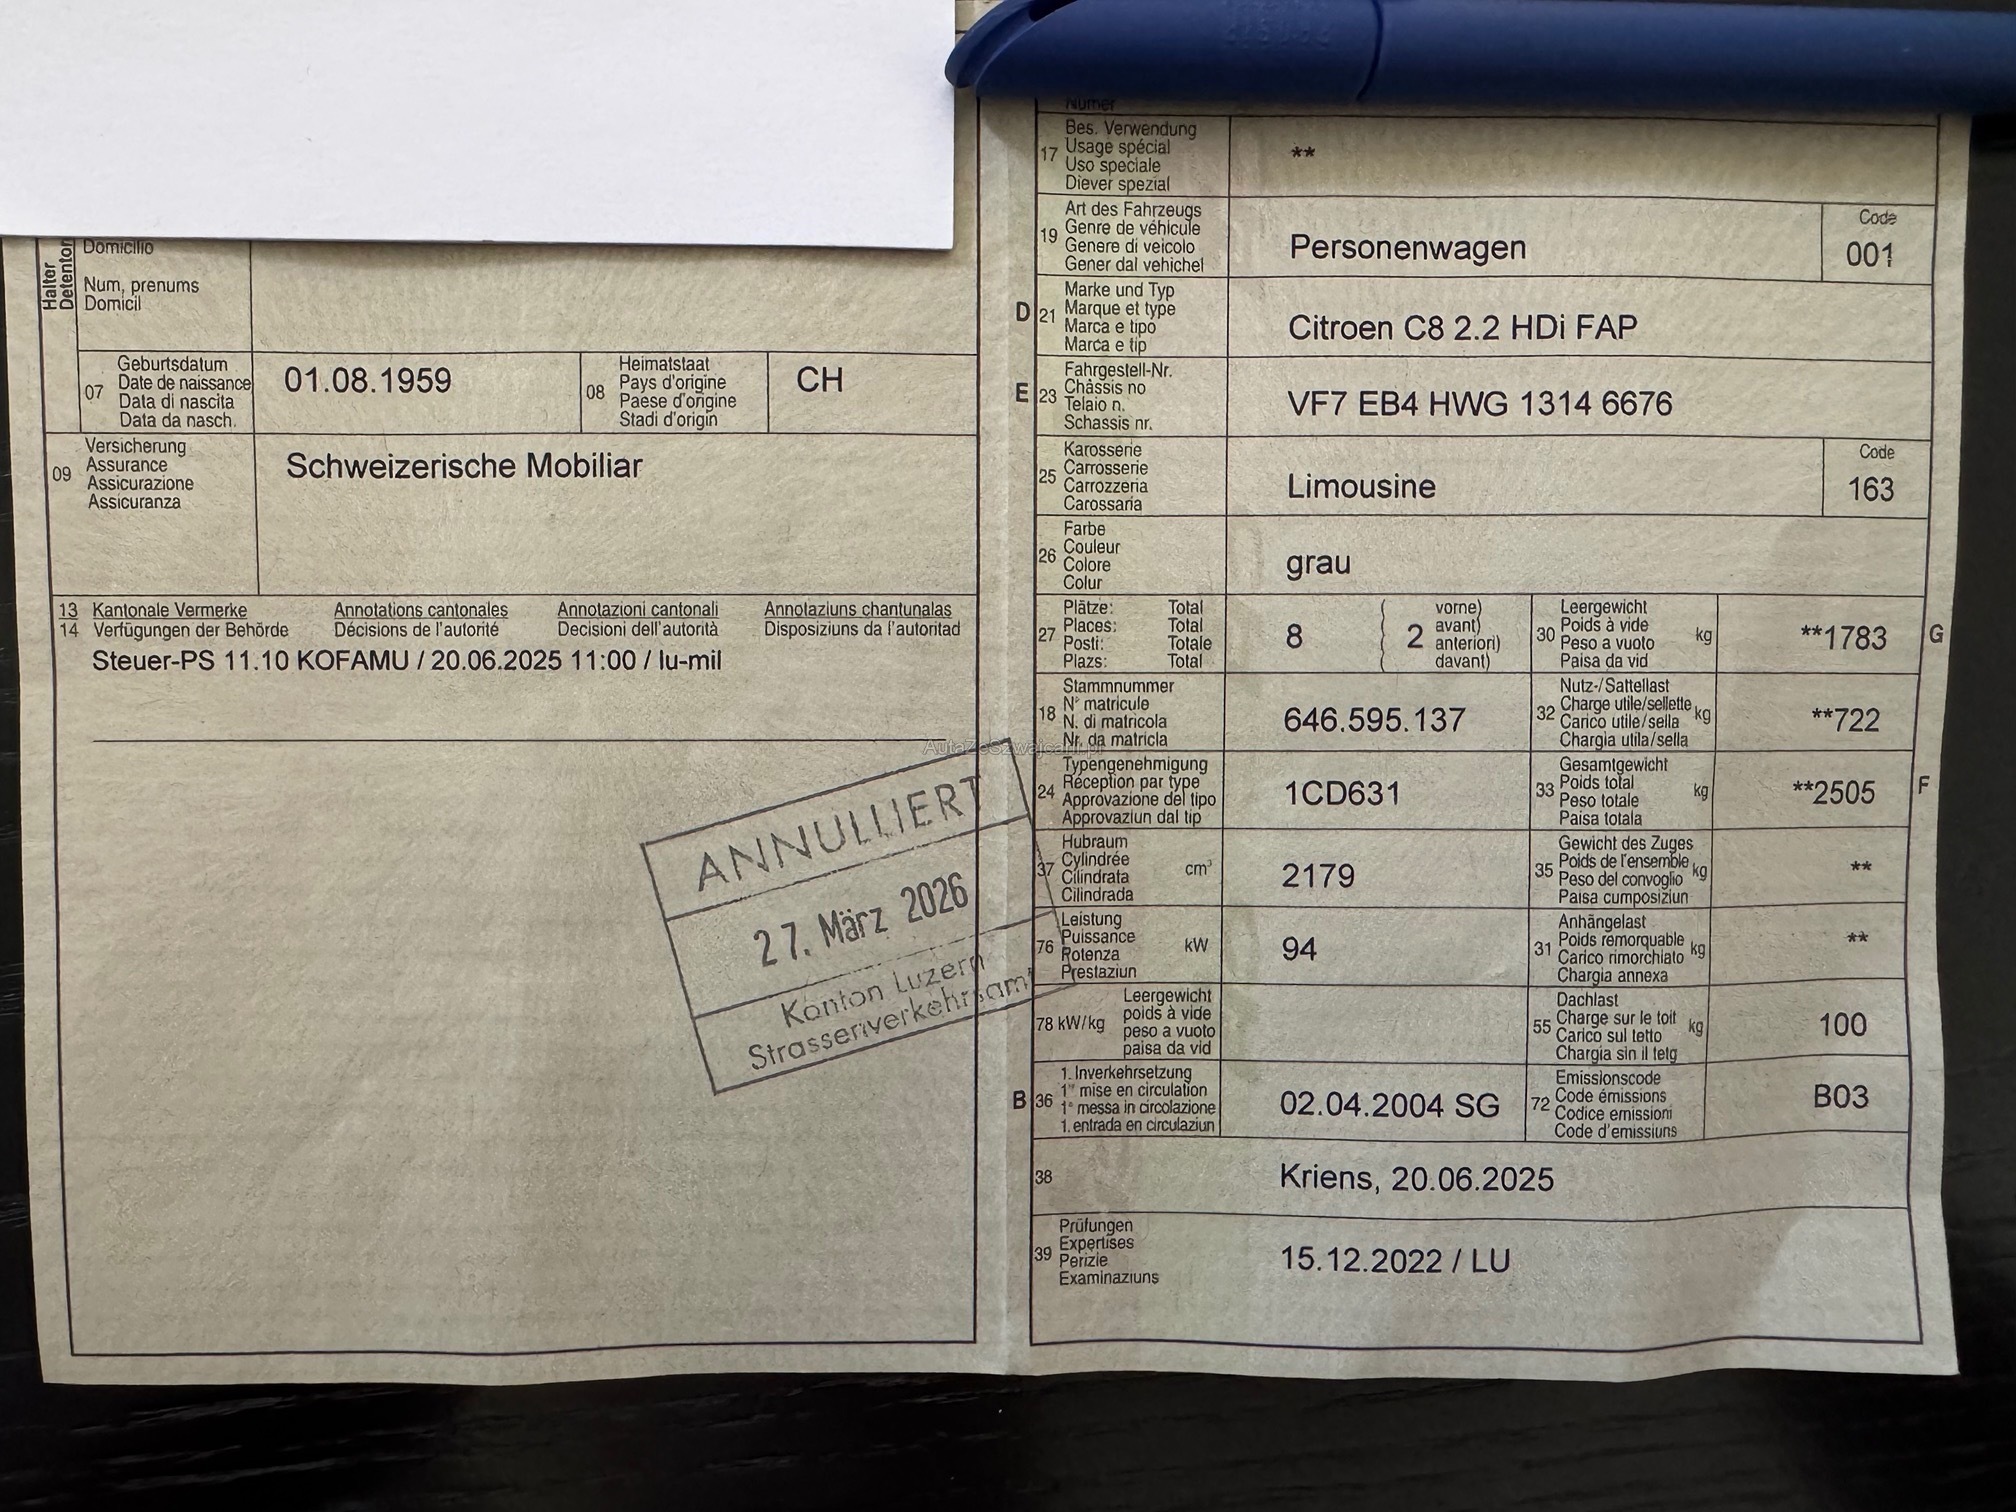 Domicilio
Num, prenums
Domicil
Halter
Detentor
07
Geburtsdatum
Date de naissance
Data di nascita
Data da nasch.
01.08.1959
08
Heimatstaat
Pays d'origine
Paese d'origine
Stadi d'origin
CH
09
Versicherung
Assurance
Assicurazione
Assicuranza
Schweizerische Mobiliar
13 Kantonale Vermerke Annotations cantonales Annotazioni cantonali Annotaziuns chantunalas
14 Verfügungen der Behörde Décisions de l'autorité Decisioni dell'autorità Disposiziuns da l'autoritad
Steuer-PS 11.10 KOFAMU / 20.06.2025 11:00 / lu-mil
AutaZeSzwajcarii.pl
ANNULLIERT
27. März 2026
Kanton Luzern
Strassenverkehrsamt
Numer
17
Bes. Verwendung
Usage spécial
Uso speciale
Diever spezial
**
19
Art des Fahrzeugs
Genre de véhicule
Genere di veicolo
Gener dal vehichel
Personenwagen
Code
001
D 21
Marke und Typ
Marque et type
Marca e tipo
Marca e tip
Citroen C8 2.2 HDi FAP
E 23
Fahrgestell-Nr.
Châssis no
Telaio n.
Schassis nr.
VF7 EB4 HWG 1314 6676
25
Karosserie
Carrosserie
Carrozzeria
Carossaria
Limousine
Code
163
26
Farbe
Couleur
Colore
Colur
grau
27
Plätze: Total
Places: Total
Posti: Totale
Plazs: Total
8
2
vorne)
avant)
anteriori)
davant)
30
Leergewicht
Poids à vide
Peso a vuoto
Paisa da vid
kg
**1783
G
18
Stammnummer
N° matricule
N. di matricola
Nr. da matricla
646.595.137
32
Nutz-/Sattellast
Charge utile/sellette
Carico utile/sella
Chargia utila/sella
kg
**722
24
Typengenehmigung
Réception par type
Approvazione del tipo
Approvaziun dal tip
1CD631
33
Gesamtgewicht
Poids total
Peso totale
Paisa totala
kg
**2505
F
37
Hubraum
Cylindrée
Cilindrata
Cilindrada
cm³
2179
35
Gewicht des Zuges
Poids de l'ensemble
Peso del convoglio
Paisa cumposiziun
kg
**
76
Leistung
Puissance
Potenza
Prestaziun
kW
94
31
Anhängelast
Poids remorquable
Carico rimorchiato
Chargia annexa
kg
**
78 kW/kg
Leergewicht
poids à vide
peso a vuoto
paisa da vid
55
Dachlast
Charge sur le toit
Carico sul tetto
Chargia sin il tetg
kg
100
B 36
1. Inverkehrsetzung
1re mise en circulation
1a messa in circolazione
1. entrada en circulaziun
02.04.2004 SG
72
Emissionscode
Code émissions
Codice emissioni
Code d'emissiuns
B03
38
Kriens, 20.06.2025
39
Prüfungen
Expertises
Perizie
Examinaziuns
15.12.2022 / LU